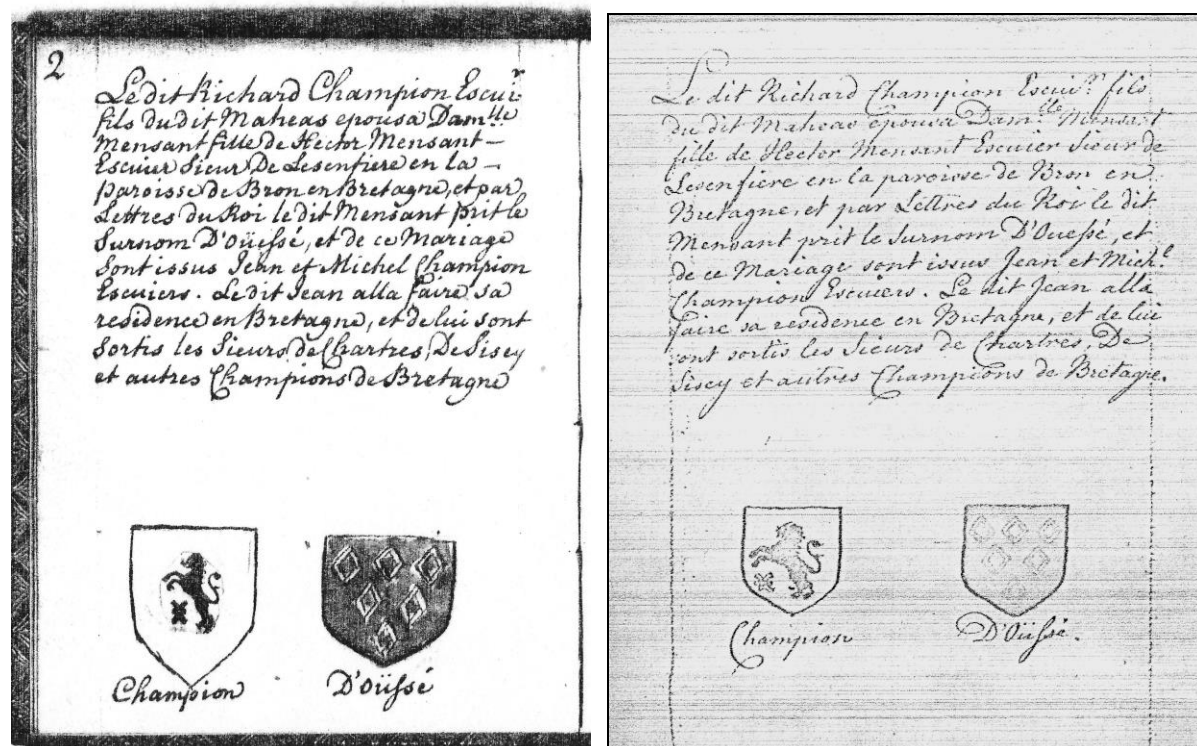 2
Le dit Richard Champion Escuir
fils du dit Maheas epousa Damlle
Mensant fille de Hector Mensant –
Escuier Sieur De Lesenfiere en la –
paroisse de Bron en Bretagne, et par
Lettres du Roi le dit Mensant prit le
Surnom D'Oüessé, et de ce Mariage
Sont issus Jean et Michel Champion
Escuiers. Le dit Jean alla faire sa
residence en Bretagne, et de lui sont
Sortis les Sieurs de Chartres, De Sisey
et autres Champions de Bretagne
Champion D'oüssé
Le dit Richard Champion Escuir fils
du dit Maheas epousa Damlle Mensant
fille de Hector Mensant Escuier Sieur de
Lesenfiere en la paroisse de Bron en
Bretagne, et par Lettres du Roi le dit
Mensant prit le Surnom D'Ouessé, et
de ce Mariage sont issus Jean et Michl
Champion Escuiers. Le dit Jean alla
faire sa residence en Bretagne, et de lui
sont sortis les Sieurs de Chartres, De
Sisey et autres Champions de Bretagne.
Champion D'Oüssé.